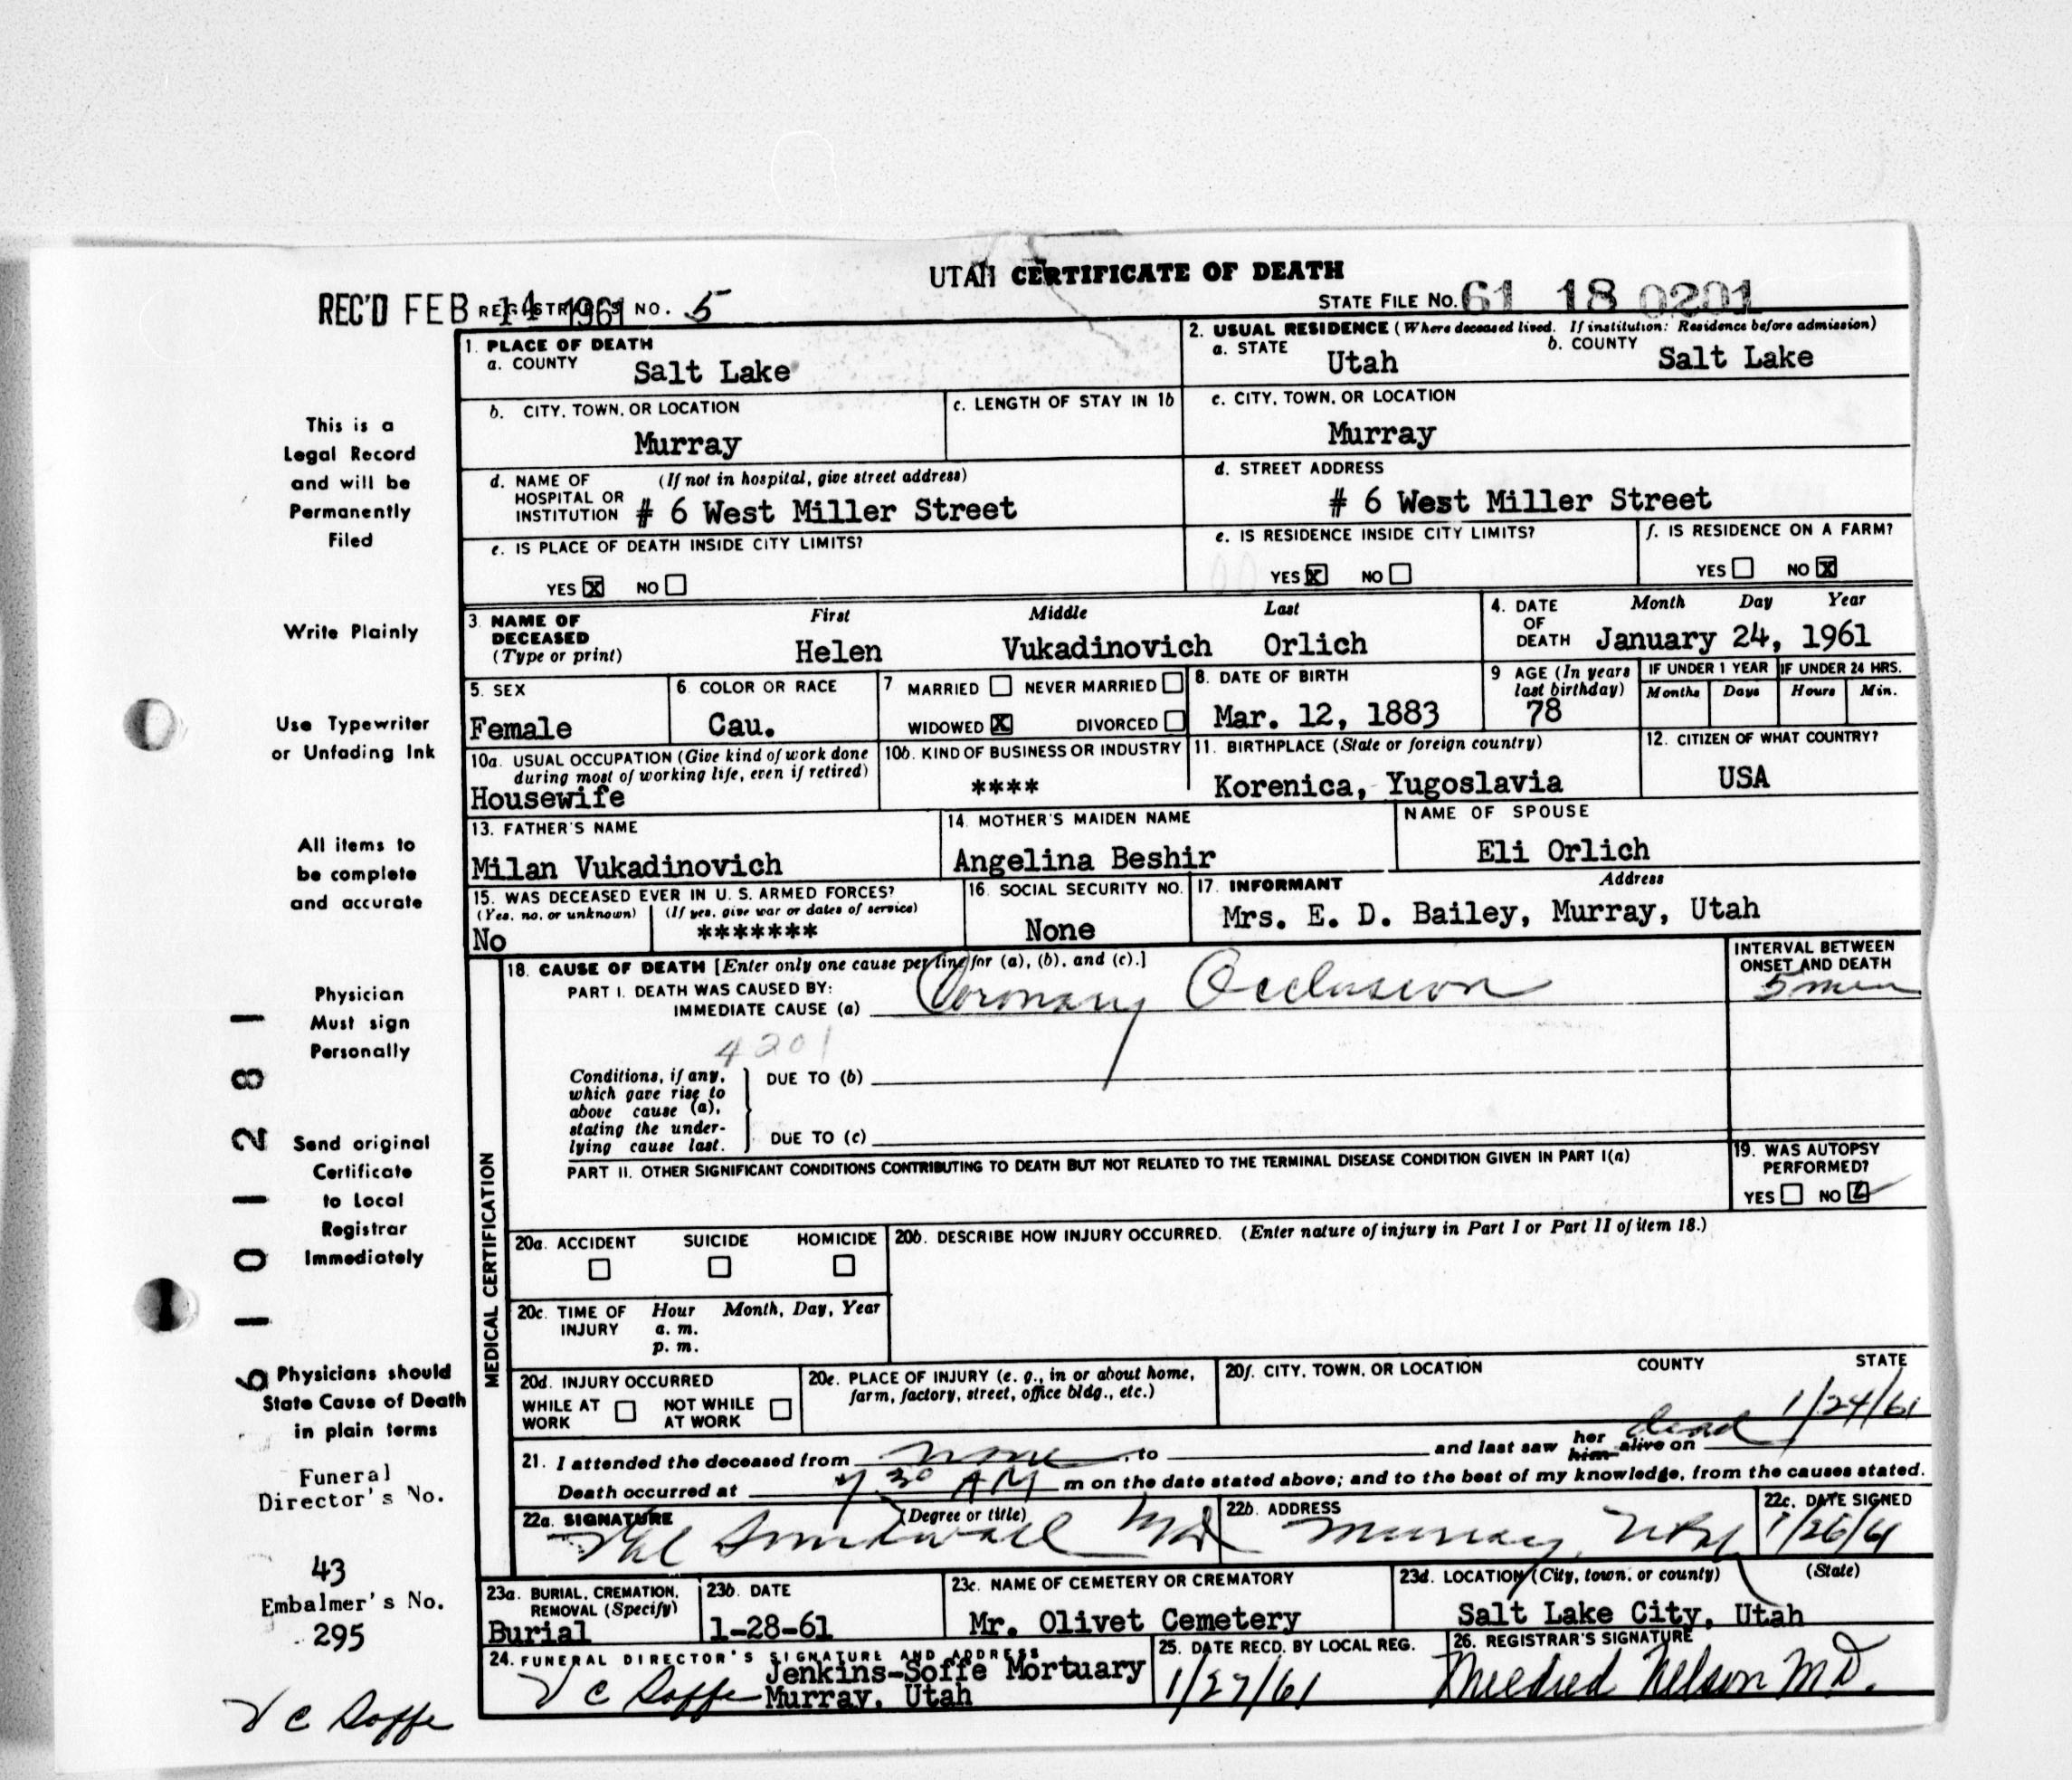 UTAH CERTIFICATE OF DEATH
REC'D FEB 14 1961 REGISTRAR'S NO. 5
STATE FILE No. 61 18 0201
1. PLACE OF DEATH
a. COUNTY Salt Lake
2. USUAL RESIDENCE (Where deceased lived. If institution: Residence before admission)
a. STATE Utah b. COUNTY Salt Lake
b. CITY, TOWN, OR LOCATION Murray
c. LENGTH OF STAY IN 1b
c. CITY, TOWN, OR LOCATION
Murray
d. NAME OF HOSPITAL OR INSTITUTION (If not in hospital, give street address)
# 6 West Miller Street
d. STREET ADDRESS
# 6 West Miller Street
e. IS PLACE OF DEATH INSIDE CITY LIMITS?
YES X NO
e. IS RESIDENCE INSIDE CITY LIMITS?
YES X NO
f. IS RESIDENCE ON A FARM?
YES NO X
3. NAME OF DECEASED (Type or print)
First Middle Last
Helen Vukadinovich Orlich
4. DATE OF DEATH Month Day Year
January 24, 1961
5. SEX
Female
6. COLOR OR RACE
Cau.
7 MARRIED NEVER MARRIED
WIDOWED X DIVORCED
8. DATE OF BIRTH
Mar. 12, 1883
9 AGE (In years last birthday)
78
IF UNDER 1 YEAR IF UNDER 24 HRS.
Months Days Hours Min.
10a. USUAL OCCUPATION (Give kind of work done during most of working life, even if retired)
Housewife
10b. KIND OF BUSINESS OR INDUSTRY
****
11. BIRTHPLACE (State or foreign country)
Korenica, Yugoslavia
12. CITIZEN OF WHAT COUNTRY?
USA
13. FATHER'S NAME
Milan Vukadinovich
14. MOTHER'S MAIDEN NAME
Angelina Beshir
NAME OF SPOUSE
Eli Orlich
15. WAS DECEASED EVER IN U. S. ARMED FORCES?
(Yes, no, or unknown) (If yes, give war or dates of service)
No *******
16. SOCIAL SECURITY NO.
None
17. INFORMANT Address
Mrs. E. D. Bailey, Murray, Utah
MEDICAL CERTIFICATION
18. CAUSE OF DEATH [Enter only one cause per line for (a), (b), and (c).]
PART I. DEATH WAS CAUSED BY:
IMMEDIATE CAUSE (a) Coronary Occlusion
INTERVAL BETWEEN ONSET AND DEATH
5 min
4201
Conditions, if any, which gave rise to above cause (a), stating the underlying cause last.
DUE TO (b)
DUE TO (c)
PART II. OTHER SIGNIFICANT CONDITIONS CONTRIBUTING TO DEATH BUT NOT RELATED TO THE TERMINAL DISEASE CONDITION GIVEN IN PART I(a)
19. WAS AUTOPSY PERFORMED?
YES NO
20a. ACCIDENT SUICIDE HOMICIDE
20b. DESCRIBE HOW INJURY OCCURRED. (Enter nature of injury in Part I or Part II of item 18.)
20c. TIME OF INJURY Hour Month, Day, Year
a. m.
p. m.
20d. INJURY OCCURRED
WHILE AT WORK NOT WHILE AT WORK
20e. PLACE OF INJURY (e. g., in or about home, farm, factory, street, office bldg., etc.)
20f. CITY, TOWN, OR LOCATION COUNTY STATE
21. I attended the deceased from none, to and last saw her him alive on dead 1/24/61
Death occurred at 7 30 AM m on the date stated above; and to the best of my knowledge, from the causes stated.
22a. SIGNATURE (Degree or title)
Sundwall MD
22b. ADDRESS
Murray, Utah
22c. DATE SIGNED
1/26/61
23a. BURIAL, CREMATION, REMOVAL (Specify)
Burial
23b. DATE
1-28-61
23c. NAME OF CEMETERY OR CREMATORY
Mr. Olivet Cemetery
23d. LOCATION (City, town, or county) (State)
Salt Lake City, Utah
24. FUNERAL DIRECTOR'S SIGNATURE AND ADDRESS
V C Soffe Jenkins-Soffe Mortuary
Murray, Utah
25. DATE RECD. BY LOCAL REG.
1/27/61
26. REGISTRAR'S SIGNATURE
Mildred Nelson M.D.
This is a
Legal Record
and will be
Permanently
Filed
Write Plainly
Use Typewriter
or Unfading Ink
All items to
be complete
and accurate
Physician
Must sign
Personally
Send original
Certificate
to Local
Registrar
Immediately
Physicians should
State Cause of Death
in plain terms
Funeral
Director's No.
43
Embalmer's No.
295
V C Soffe
6 1 0 1 2 8 1